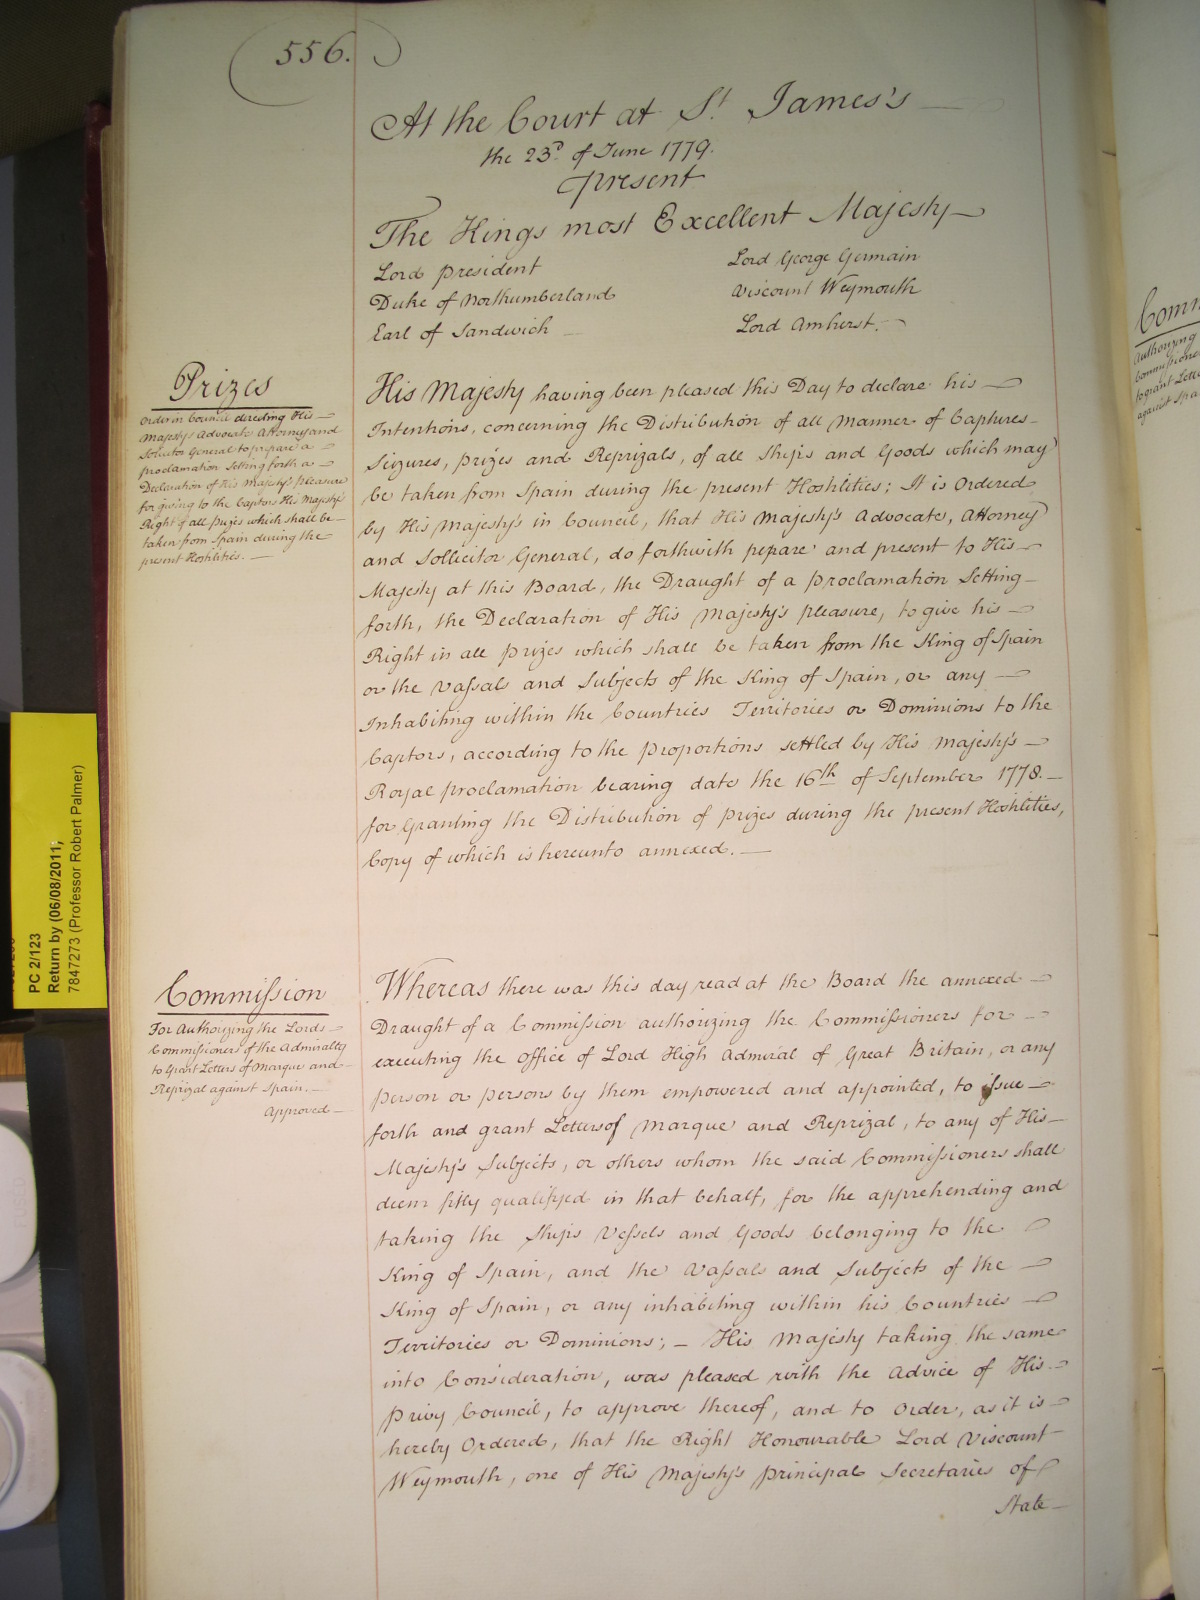 556.
At the Court at St. James's
the 23d. of June 1779.
Present
The Kings most Excellent Majesty
Lord President
Duke of Northumberland
Earl of Sandwich
Lord George Germain
Viscount Weymouth
Lord Amherst.
Prizes
Order in Council directing His
Majestys Advocate Attorney and
Solicitor General to prepare a
proclamation Setting forth a
Declaration of His Majesty's pleasure
for giving to the Captors His Majestys
Right of all Prizes which shall be
taken from Spain during the
present Hostilities.
His Majesty having been pleased this Day to declare his
Intentions, concerning the Distribution of all Manner of Captures
Seizures, Prizes and Reprizals, of all Ships and Goods which may
be taken from Spain during the present Hostilities; It is Ordered
by His Majesty's in Council, that His Majesty's Advocate, Attorney
and Sollicitor General, do forthwith pepare and present to His
Majesty at this Board, the Draught of a Proclamation Setting
forth, the Declaration of His Majesty's pleasure, to give his
Right in all Prizes which shall be taken from the King of Spain
or the Vassals and Subjects of the King of Spain, or any
Inhabiting within the Countries Territories or Dominions to the
Captors, according to the Proportions settled by His Majesty's
Royal Proclamation bearing date the 16th of September 1778.
for Granting the Distribution of Prizes during the present Hostilities,
Copy of which is hereunto annexed.
Commission
For Authorizing the Lords
Commissioners of the Admiralty
to Grant Letters of Marque and
Reprizal against Spain.
Approved
Whereas there was this day read at the Board the annexed
Draught of a Commission authorizing the Commissioners for
executing the Office of Lord High Admiral of Great Britain, or any
Person or Persons by them empowered and appointed, to issue
forth and grant Letters of Marque and Reprizal, to any of His
Majesty's Subjects, or others whom the said Commissioners shall
deem fitly qualified in that behalf, for the apprehending and
taking the Ships Vessels and Goods belonging to the
King of Spain, and the Vassals and Subjects of the
King of Spain, or any inhabiting within his Countries
Territories or Dominions; His Majesty taking the same
into Consideration, was pleased with the Advice of His
Privy Council, to approve thereof, and to Order, as it is
hereby Ordered, that the Right Honourable Lord Viscount
Weymouth, one of His Majesty's Principal Secretaries of
State
PC 2/123
Return by (06/08/2011;
7847273 (Professor Robert Palmer)
Authorizing
to grant
against Spa